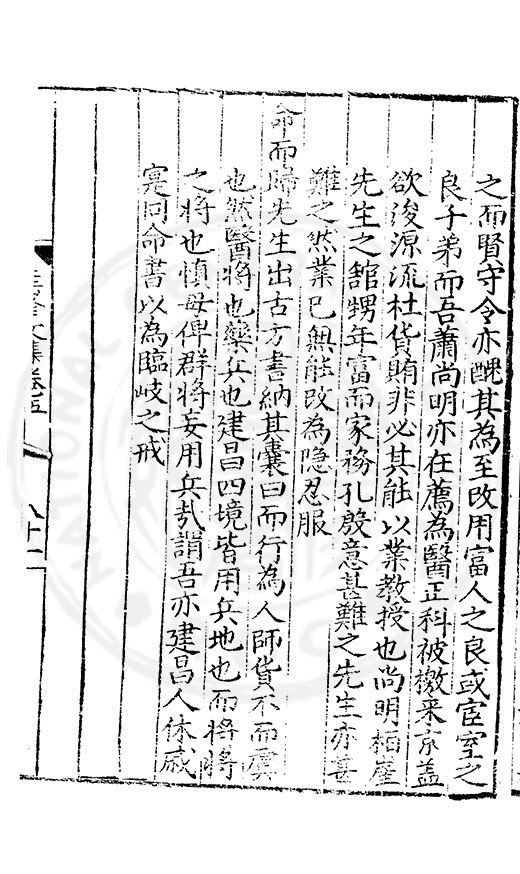 之而賢守令亦醜其為至改用富人之良或宦室之
良子弟而吾蕭尚明亦在薦為醫正科被檄來京蓋
欲浚源流杜貨賄非必其能以業教授也尚明栢崖
先生之舘甥年富而家務孔殷意甚難之先生亦甚
難之然業已無能改為隐忍服
命而歸先生出古方書納其囊曰而行為人師貨不而虞
也然醫將也藥兵也建昌四境皆用兵地也而將將
之將也慎毋俾群將妄用兵哉誚吾亦建昌人休戚
寔同命書以為臨岐之戒
文集卷五
八十二